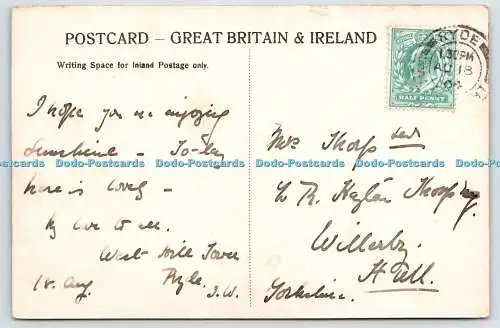 POSTCARD — GREAT BRITAIN & IRELAND
Writing Space for Inland Postage only.
I hope you are enjoying
Sunshine - To-day
here is lovely -
My love to all.
West Hill Tower
Ryde.
18. Aug. J.W.
Mrs Thorp
Willerby
Hull.
Yorkshire.
HALF PENNY
RYDE
1.30PM
AU 18
04
Dodo-Postcards Dodo-Postcards Dodo-Postcards Dodo-Postcards Dodo-Postcards